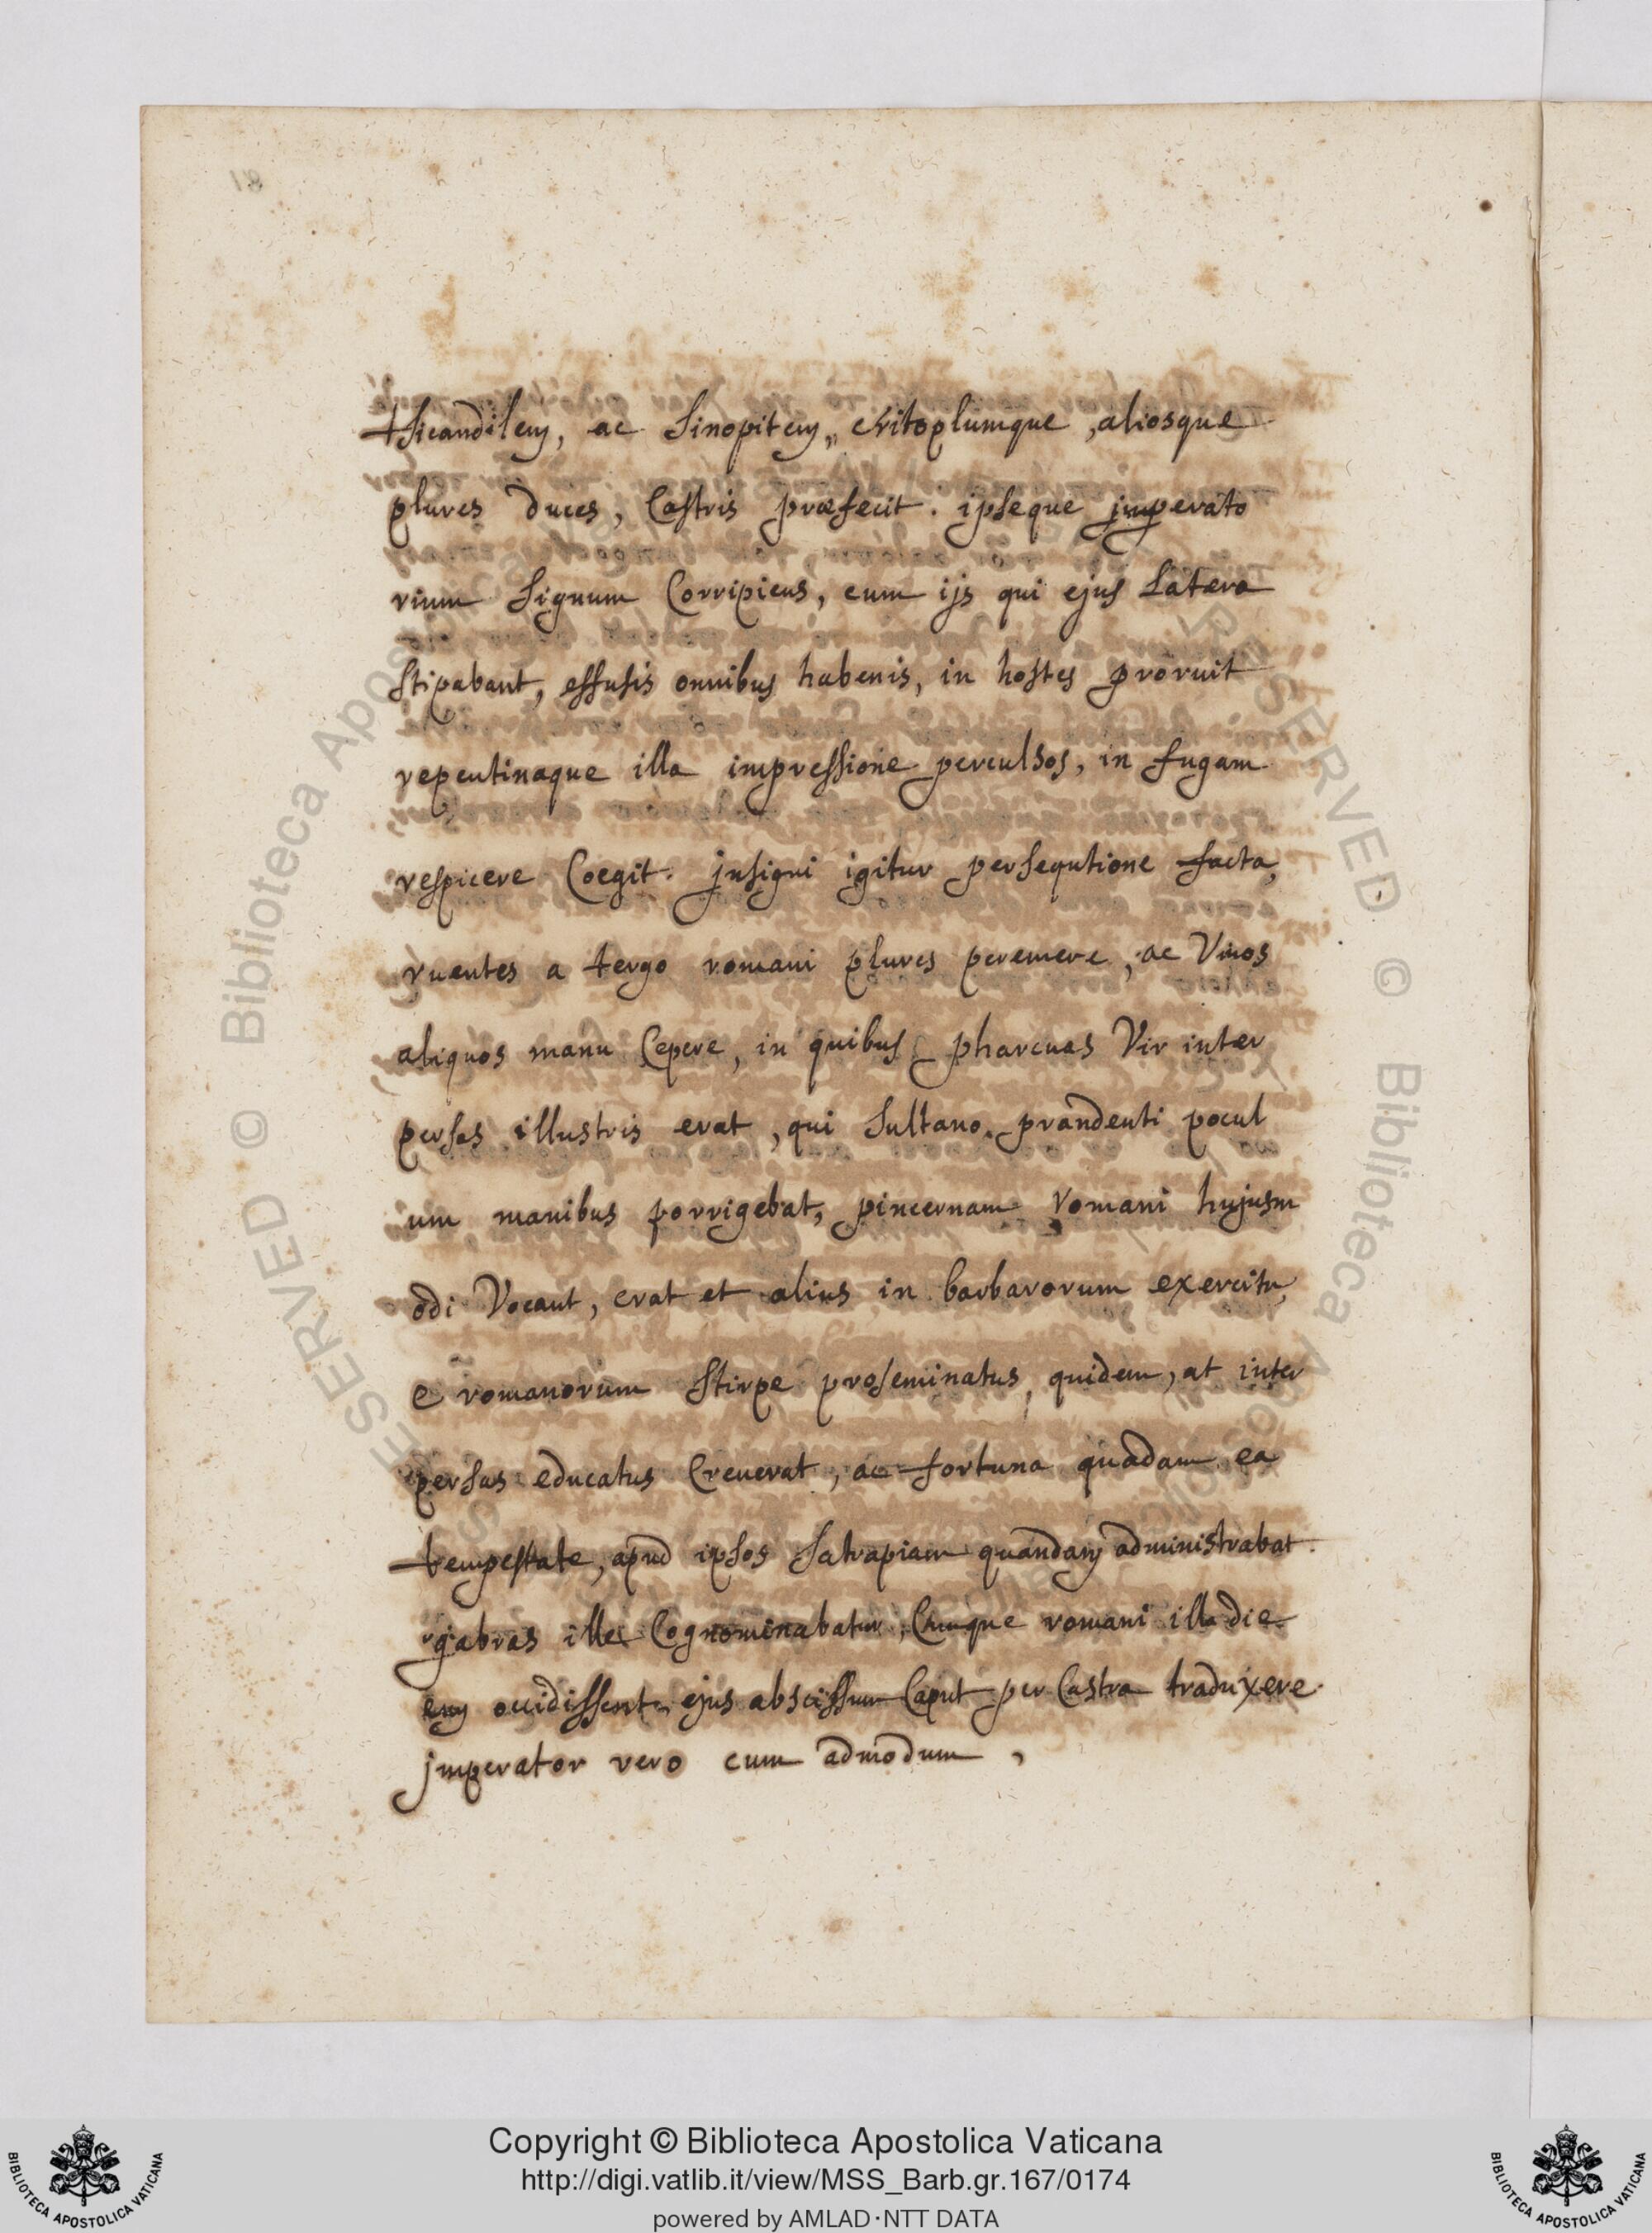 tsicandilem, ac Sinopitem, critoplumque, aliosque
plures duces, Castris præfecit. ipseque imperato
rium Signum Corripiens, cum ijs qui ejus Latera
stipabant, effusis omnibus habenis, in hostes proruit
repentinaque illa impressione perculsos, in fugam
respicere Coegit. jnsigni igitur persequtione facta,
ruentes a tergo romani plures peremere, ac Vivos
aliquos manu Cepere, in quibus pharcuas Vir inter
persas illustris erat, qui Sultano prandenti pocul
um manibus porrigebat, pincernam romani hujusm
odi Vocant, erat et alius in barbarorum exercitu,
e romanorum Stirpe proseminatus, quidem, at inter
persas educatus Creuerat, ac fortuna quadam ea
tempestate, apud ipsos Satrapiam quandam administrabat.
gabras ille Cognominabatur, Cumque romani illa die
eum occidissent, ejus abscissum Caput per Castra traduxere.
jmperator vero cum admodum,
RESERVED © Biblioteca Apostolica
RESERVED © Biblioteca Apostolica
Copyright © Biblioteca Apostolica Vaticana
http://digi.vatlib.it/view/MSS_Barb.gr.167/0174
powered by AMLAD·NTT DATA
BIBLIOTECA APOSTOLICA VATICANA
BIBLIOTECA APOSTOLICA VATICANA